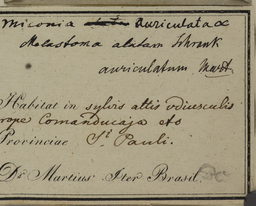 Miconia auriculata α
Melastoma alatum Schrank
auriculatum Mart.
Habitat in sylvis altis udiusculis
prope Comanducaja etc
Provinciae St Pauli.
Dr Martius Iter Brasil.